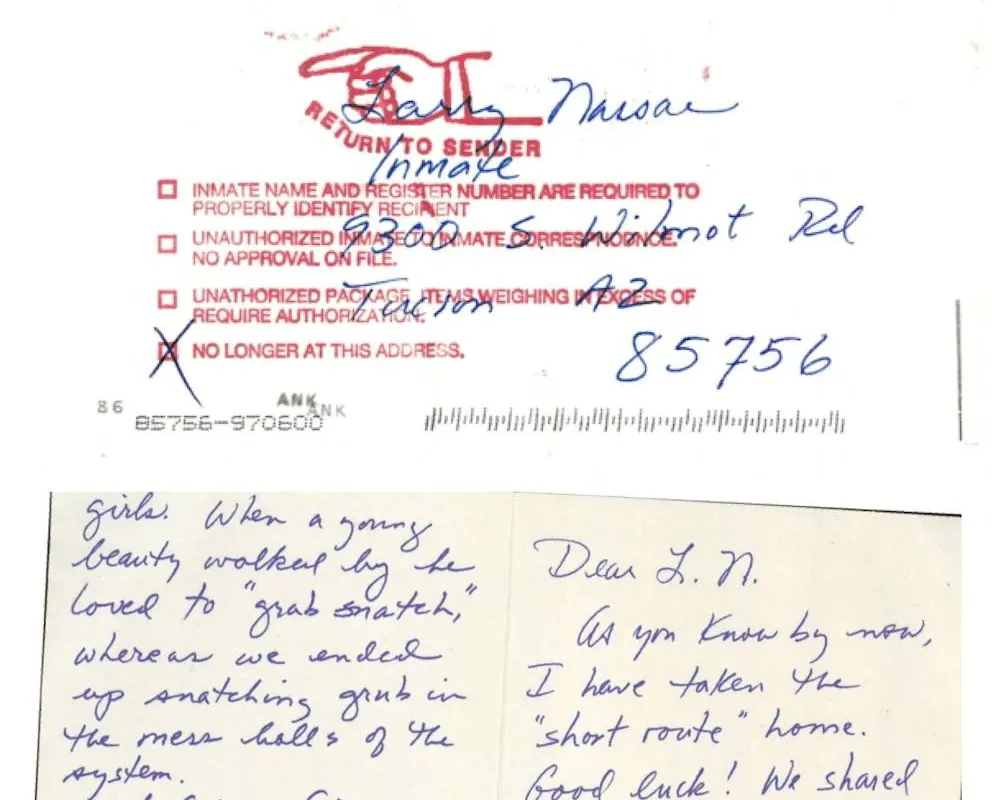 Larry Nassar
RETURN TO SENDER
Inmate
INMATE NAME AND REGISTER NUMBER ARE REQUIRED TO
PROPERLY IDENTIFY RECIPIENT
9300 S. Wilmot Rd
UNAUTHORIZED INMATE TO INMATE CORRESPONDNCE.
NO APPROVAL ON FILE.
Tucson AZ
UNATHORIZED PACKAGE, ITEMS WEIGHING IN EXCESS OF
REQUIRE AUTHORIZATION.
85756
NO LONGER AT THIS ADDRESS.
86
ANK
ANK
85756-970600
girls. When a young
beauty walked by he
loved to "grab snatch,"
whereas we ended
up snatching grub in
the mess halls of the
system.
Dear L. N.
As you know by now,
I have taken the
"short route" home.
Good luck! We shared